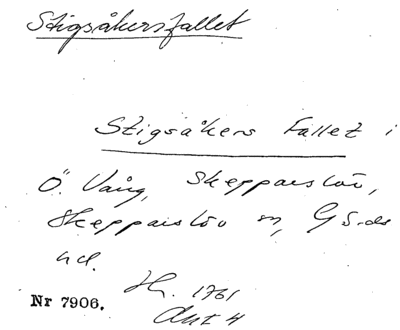 Stigsåkersfallet
Stigsåkers Fallet i
Ö. Vång, Skepparslöv,
Skepparslöv sn, Gärds
hd.
Nr 7906.
1761
Akt 4